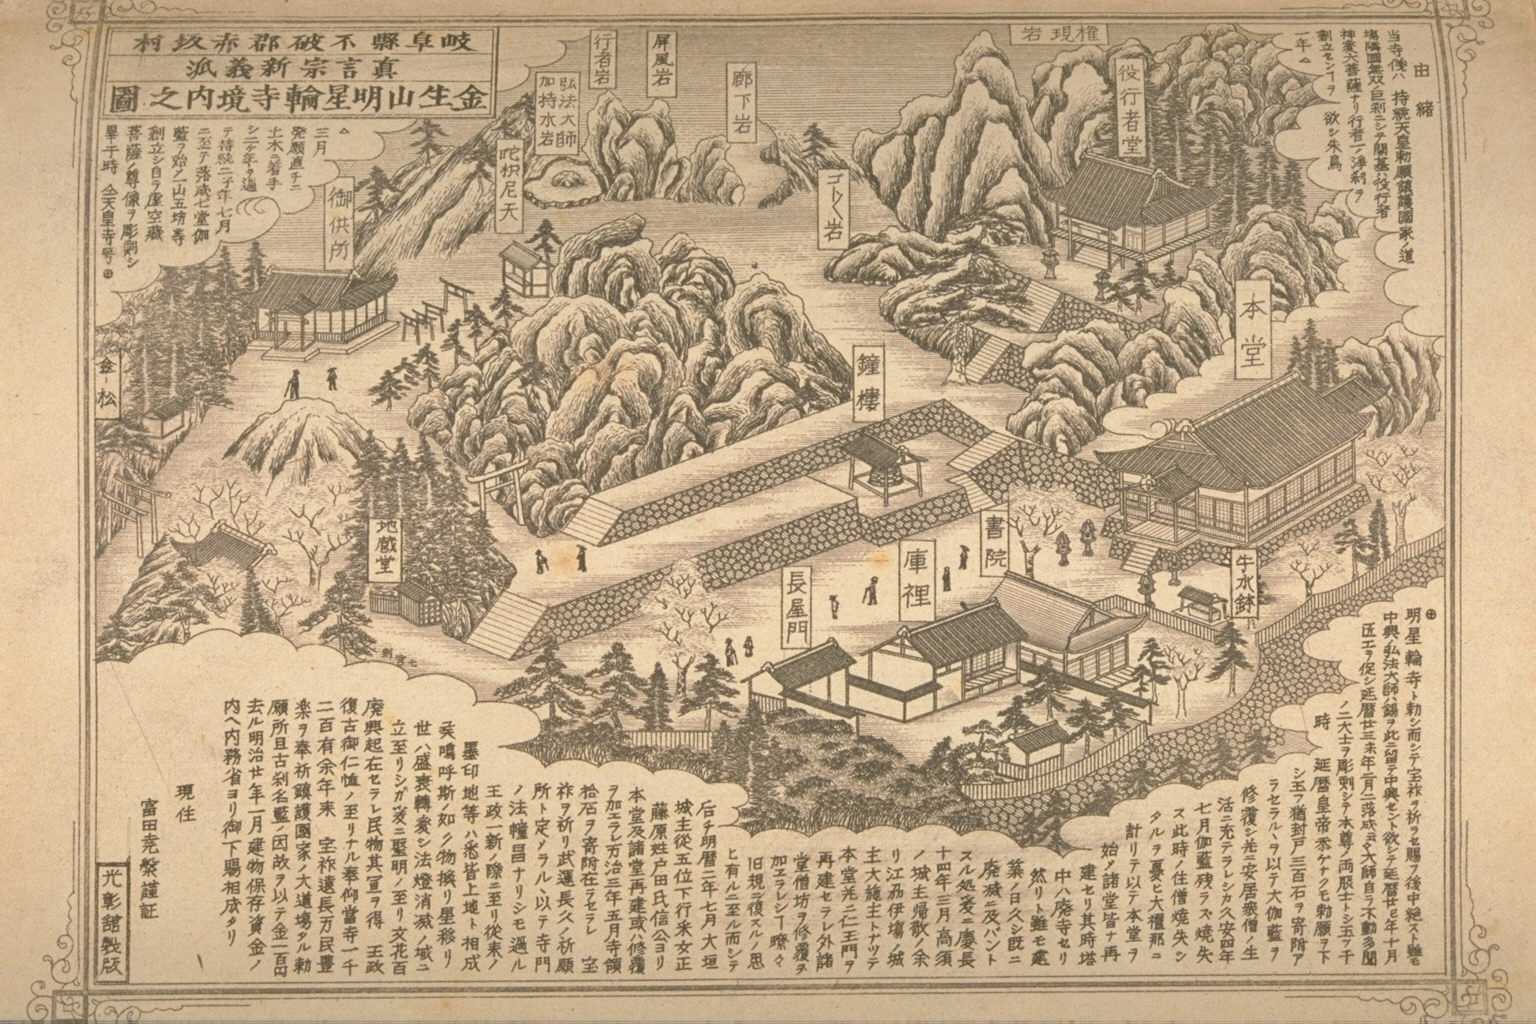 岐阜縣不破郡赤坂村
真言宗新義派
金生山明星輪寺境内之圖
由緒
當寺儀ハ 持統天皇勅願鎮護國家ノ道
塲隣國無双ノ巨刹ニシテ開基ハ役行者
神変大菩薩ナリ行者一ノ浄刹ヲ
創立セント 欲シ朱鳥
一年△
△
三月
発願直チニ
土木ニ着手
シ二ケ年ヲ過
テ持統二子年七月
ニ至テ落成七堂伽
藍ヲ始メ一山五坊等
創立シ自ラ虚空藏
菩薩ノ尊像ヲ彫刻シ
畢于時
⊕
⊕
明星輪寺ト勅シ而シテ宝祚ヲ祈ラセ賜フ後中絶スト雖モ
中興ノ弘法大師ハ錫ヲ此ニ留テ中興セント欲シテ延暦廿
匠工ヲ促シ延暦廿三
ノ二大士ヲ彫刻シテ本尊ノ両脇士トシ玉フ于
時 延暦皇帝忝ケナクモ勅願ヲ下
シ玉フ猶封戸三百石ヲ寄附ア
ラセラル、ヲ以テ大伽藍ヲ
修覆シ
活ニ充テラレシカ久安四年
七月伽藍残ラズ焼失
ス此時ノ住僧焼失シ
タルヲ憂ヒ大檀那ニ
計リテ以テ本堂ヲ
始メ諸堂皆ナ再
建セリ其時塔
中ハ廃寺セリ
然リト雖モ建
築ノ日久シ既ニ
廃滅ニ及バント
スル処爰ニ慶長
十四年三月高須
ノ城主
リ江
主大施主トナツテ
本堂并ニ仁王門ヲ
再建セラレ外諸
堂僧坊ヲ修覆ヲ
加エラレシー
旧規ニ復スルノ思
ヒ有ルニ至ル而シテ
后チ明暦二年七月大垣
城主從五位下行采女正
藤原姓戸田氏信公ヨリ
本堂及諸堂再建或ハ修覆
ヲ加エラレ万治三年五月寺領
拾石ヲ寄附在ラセラレ 宝
祚ヲ祈リ武運長久ノ祈願
所ト定メラル、以テ寺門
ノ法幢昌ナリシモ過ル
王政一新ノ際ニ至リ從来ノ
墨印地等ハ悉皆上地ト相成
嗚呼斯ノ如ク物換リ星移リ
世ハ盛衰轉変シ法燈消滅ノ域ニ
立至リシガ爰ニ聖明ノ至リ文花百
廃興起在セラレ民物其宜ヲ得 王政
復古御仁恤ノ至リナル奉仰當寺一千
二百有余年来 宝祚遠長万民豊
楽ヲ奉祈鎮護國家ノ大道塲タル勅
願所且古刹名藍ノ因故ヲ以テ金一百円
去ル明治廿年一月建物保存資金ノ
内ヘ内務省ヨリ御下賜相成タリ
現住
富田
謹証
光彰舘製版
権現岩
役行者堂
屏風岩
行者岩
弘法大師
加持水岩
廊下岩
吒枳尼天
御供所
ゴトク岩
本堂
鐘樓
地蔵堂
書院
庫裡
長屋門
牛水鉢
松